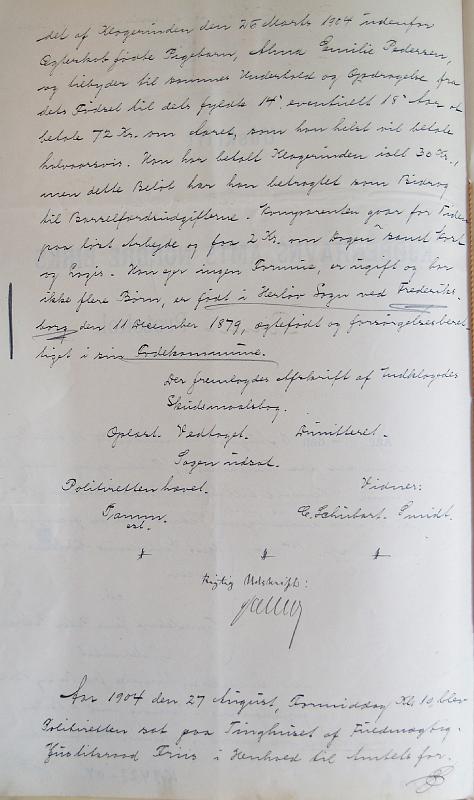 det af Klagerinden den 26 Marts 1904 udenfor
Ægteskab fødte Pigebarn, Alma Emilie Pedersen,
og tilbyder til sammes Underhold og Opdragelse fra
dets Fødsel til dets fyldte 14, eventuelt 18 Aar at
betale 72 Kr. om Aaret, som han helst vil betale
halvaarsvis. Han har betalt Klagerinden ialt 30 Kr.,
men dette Beløb har han betragtet som Bidrag
til Barselfærdsudgifterne. Komparenten gaar for Tiden
paa løst Arbejde og faar 2 Kr. om Dagen samt Kost
og Logis. Han ejer ingen Formue, er ugift og har
ikke flere Børn, er født i Herløv Sogn ved Frederiks-
borg den 11 December 1879, ægtefødt og forsørgelsesberet-
tiget i sin Fødekommune.
Der fremlagdes Afskrift af Indklagedes
Skudsmaalsbog.
Oplæst. Vedtaget. Dimitteret.
Sagen udsat.
Politiretten hævet.
Vidner:
cst.
C. Schubart. Smidt.
Rigtig Udskrift:
Aar 1904 den 27 August, Formiddag Kl 10, blev
Politiretten sat paa Tinghuset af Fuldmægtig
Friis i Henhold til Amtets for.